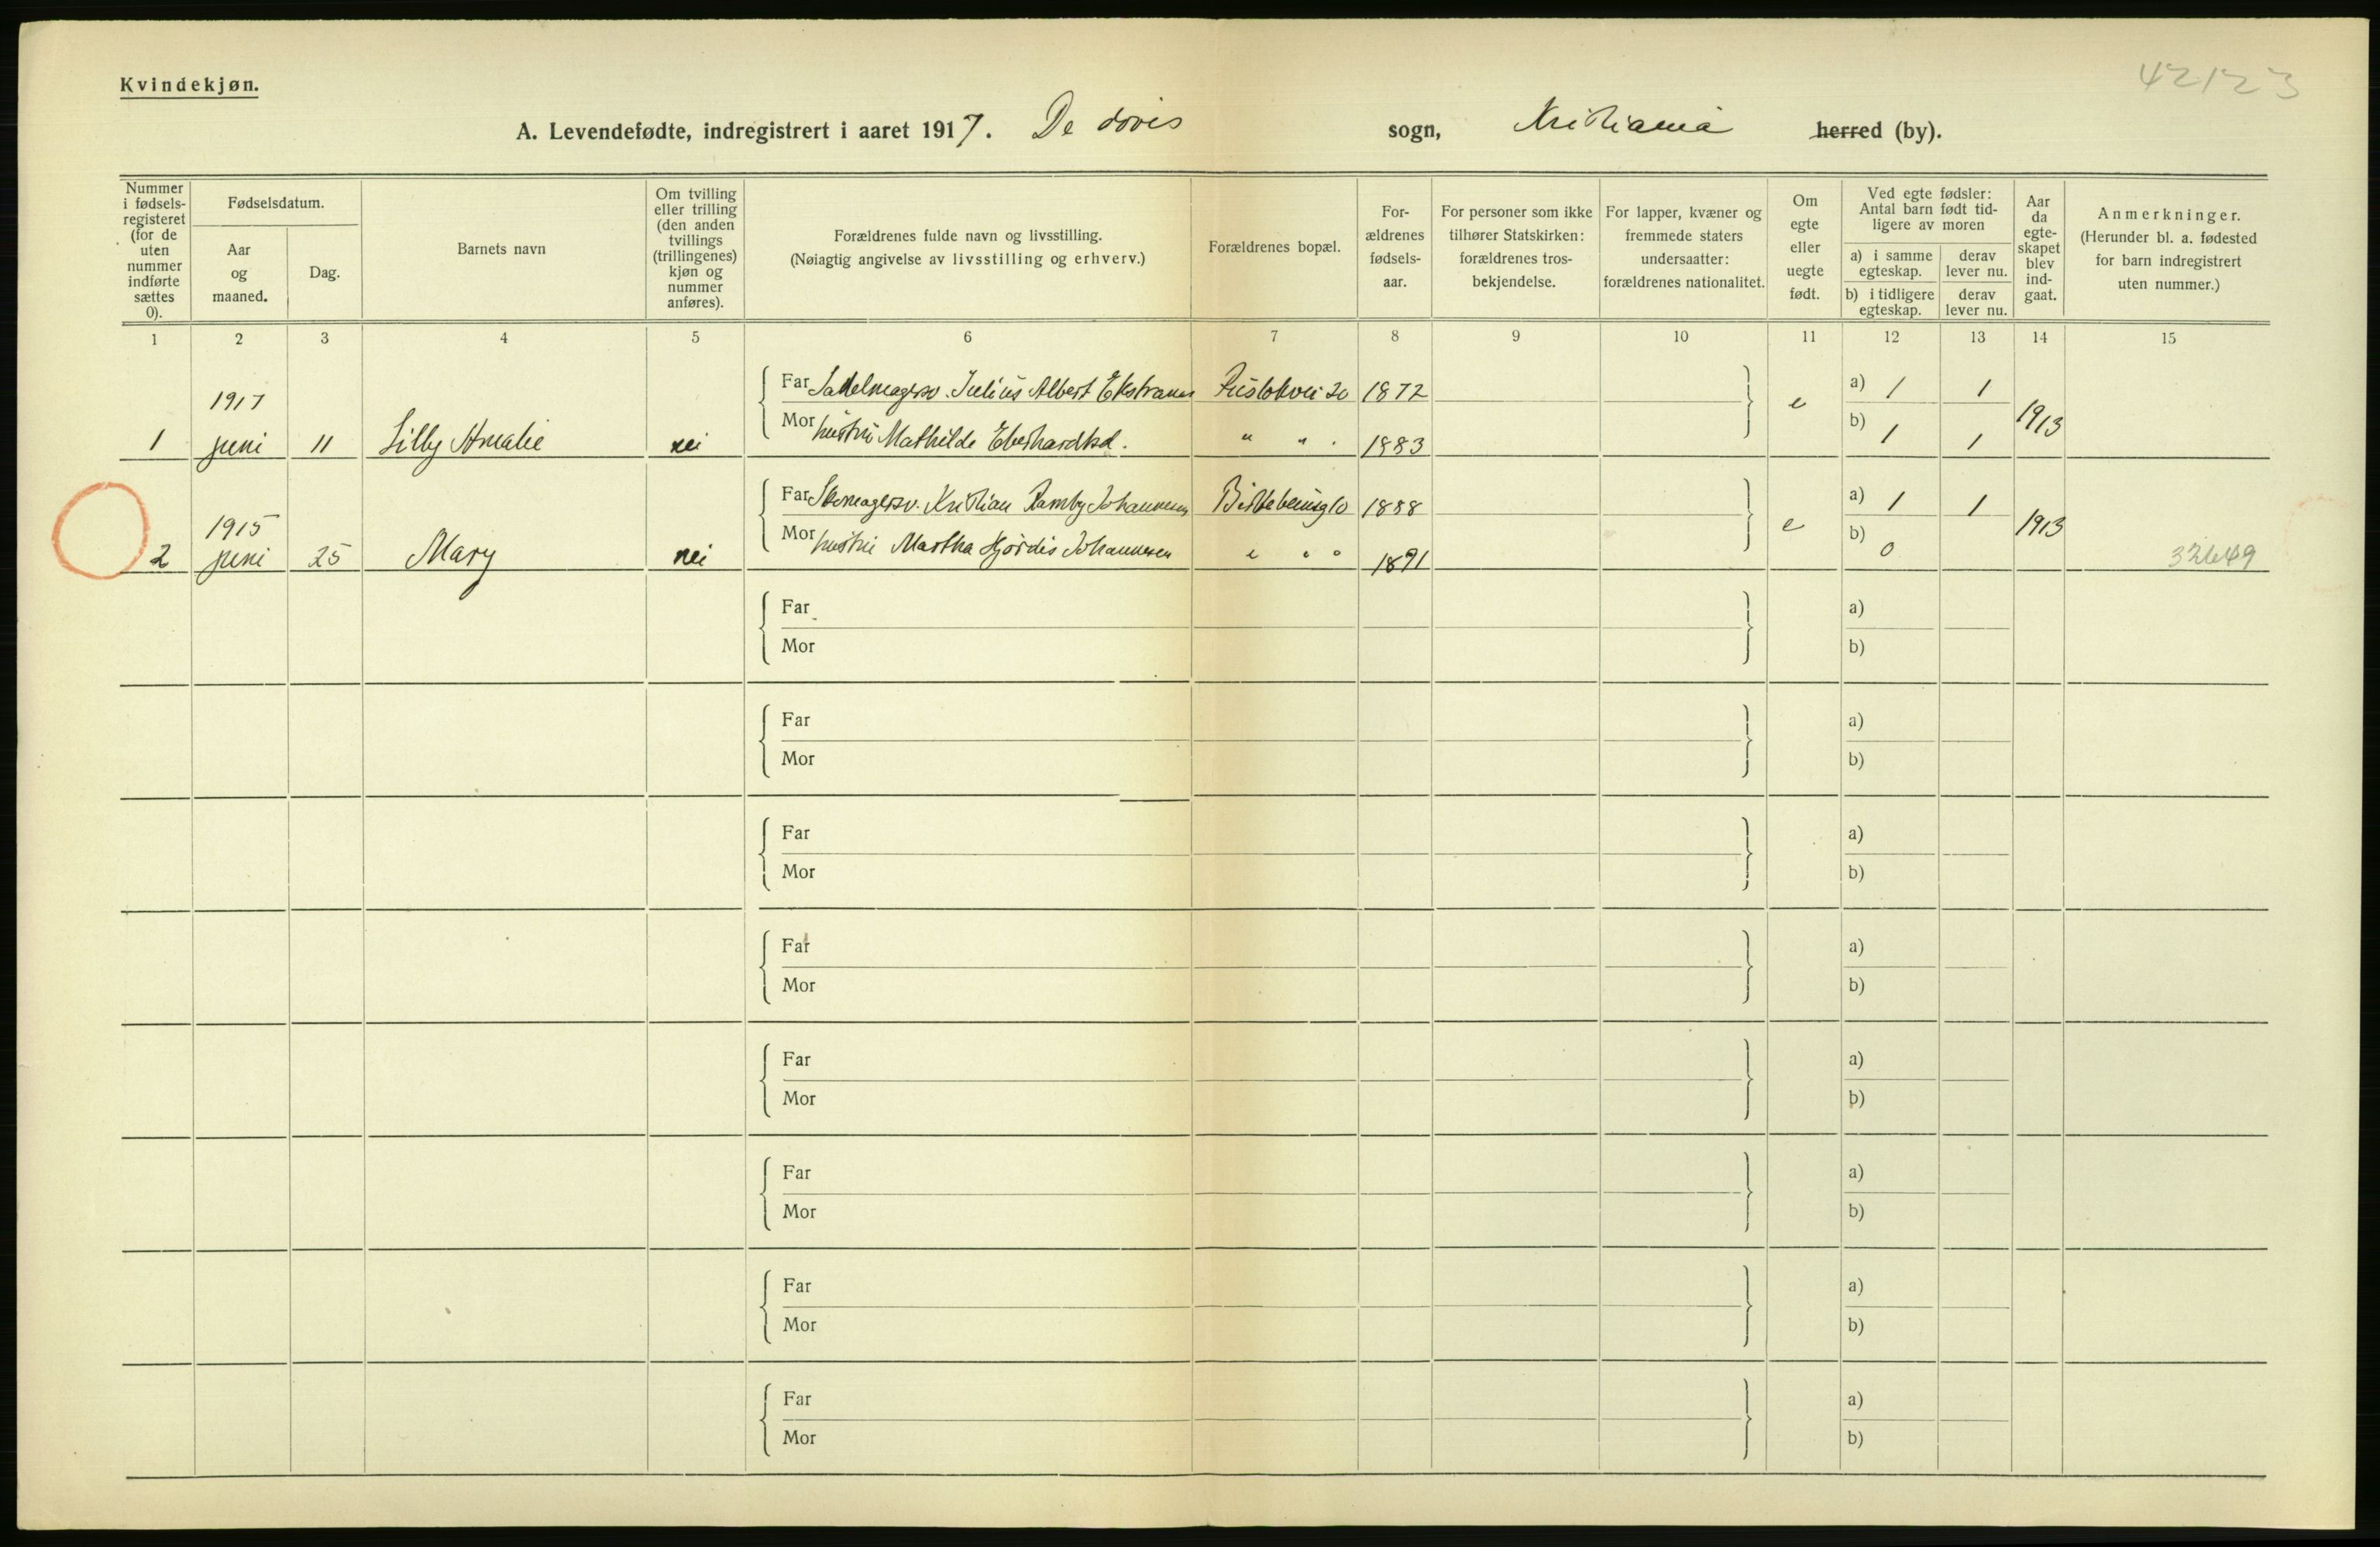 42123
Kvindekjøn.
A. Levendefødte, indregistrert i aaret 1917. De døves sogn, Kristiania herred (by).
Nummer i fødselsregisteret (for de uten nummer indførte sættes 0).
Fødselsdatum.
Aar og maaned.
Dag.
Barnets navn
Om tvilling eller trilling (den anden tvillings (trillingenes) kjøn og nummer anføres).
Forældrenes fulde navn og livsstilling.
(Nøiagtig angivelse av livsstilling og erhverv.)
Forældrenes bopæl.
For-ældrenes fødsels-aar.
For personer som ikke tilhører Statskirken: forældrenes tros-bekjendelse.
For lapper, kvæner og fremmede staters undersaatter: forældrenes nationalitet.
Om egte eller uegte født.
Ved egte fødsler: Antal barn født tid-ligere av moren
a) i samme egteskap.
derav lever nu.
b) i tidligere egteskap.
derav lever nu.
Aar da egte-skapet blev ind-gaat.
Anmerkninger.
(Herunder bl. a. fødested for barn indregistrert uten nummer.)
1 2 3 4 5 6 7 8 9 10 11 12 13 14 15
1917
Far Sadelmagersv. Julius Albert Ekstrand 20 1872 e a) 1 1 1913
1 juni 11 Lilly Amalie nei Mor hustru Mathilde " " 1883 b) 1 1
1915
Far Skomagersv. Kristian Ramby Johannesen 10 1888 e a) 1 1 1913
2 juni 25 Mary nei Mor hustru Martha Hjørdis Johannesen " " " 1891 b) 0 32649
Far a)
Mor b)
Far a)
Mor b)
Far a)
Mor b)
Far a)
Mor b)
Far a)
Mor b)
Far a)
Mor b)
Far a)
Mor b)
Far a)
Mor b)